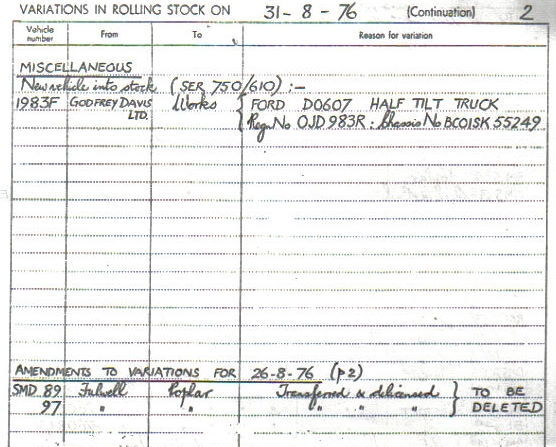 VARIATIONS IN ROLLING STOCK ON 31-8-76 (Continuation) 2
Vehicle number From To Reason for variation
MISCELLANEOUS
New vehicle into stock (SER 750/610) :-
1983F GODFREY DAVIS Works { FORD D0607 HALF TILT TRUCK
LTD. Regn No OJD 983R : Chassis No BCO1SK 55249
AMENDMENTS TO VARIATIONS FOR 26-8-76 (p2)
SMD 89 Fulwell Poplar Transferred & delicensed } TO BE
97 " " " " " DELETED